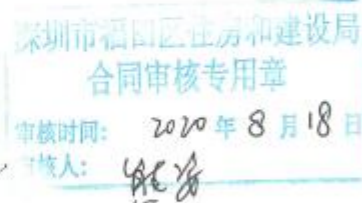 深圳市福田区住房和建设局
合同审核专用章
审核时间: 2020年8月18日
审核人: